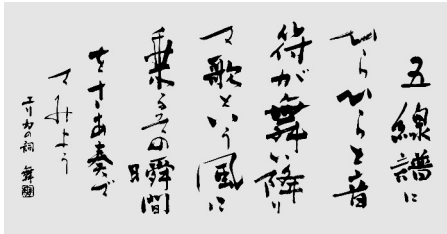 五線譜に
ひらひらと音
符が舞い降り
て歌という風に
乗るその瞬間
をさあ奏で
てみよう
エリカの詞 舞